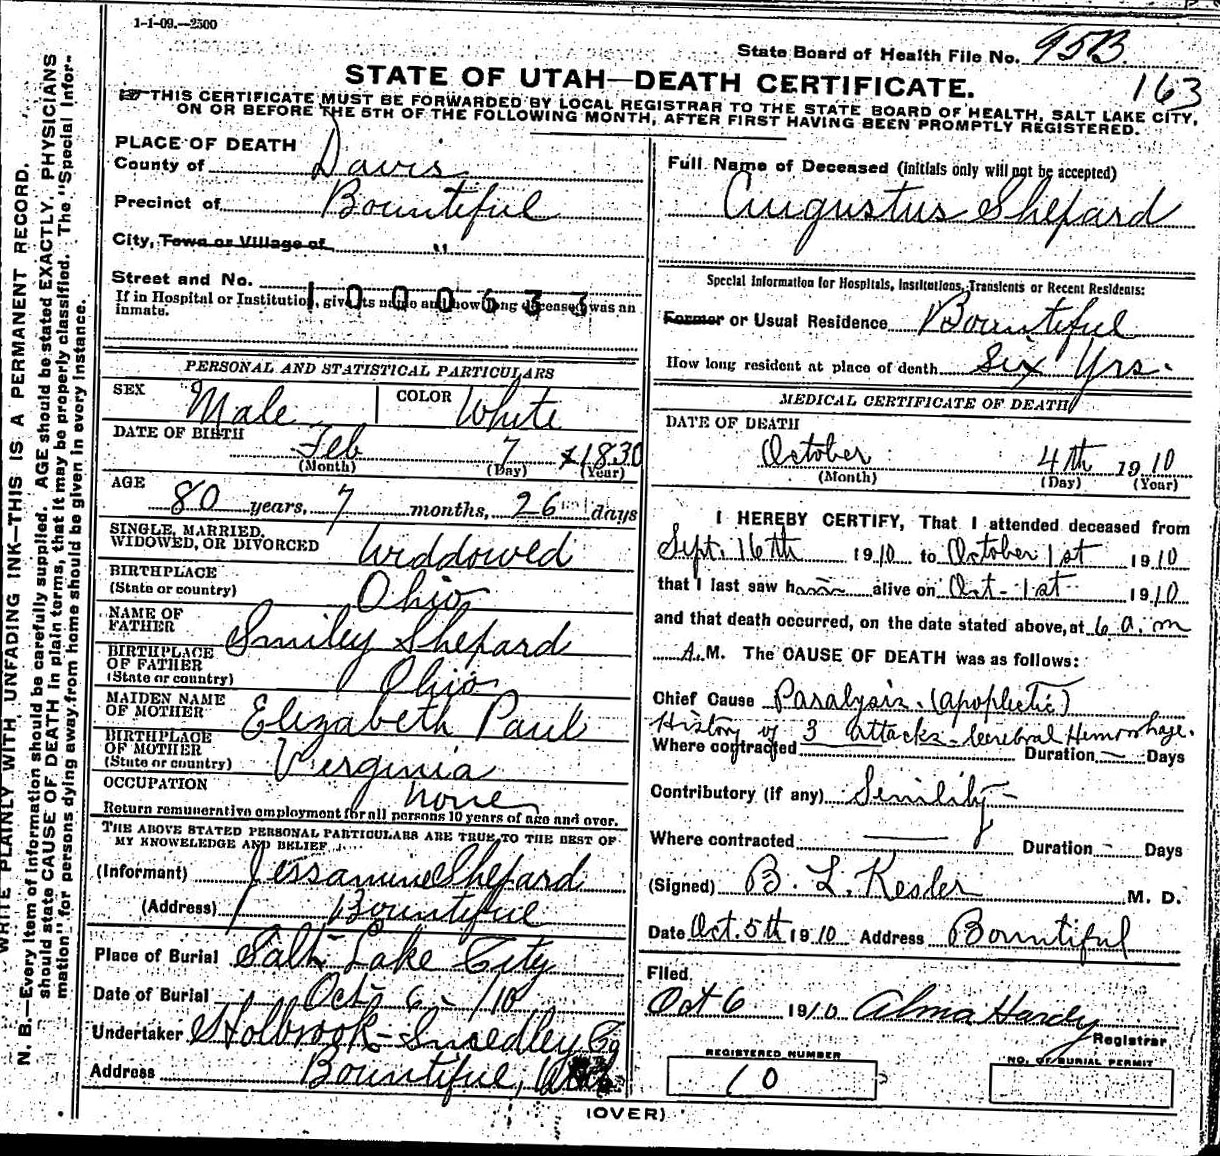 1-1-09.--2500
State Board of Health File No. 95B.
163
STATE OF UTAH—DEATH CERTIFICATE.
THIS CERTIFICATE MUST BE FORWARDED BY LOCAL REGISTRAR TO THE STATE BOARD OF HEALTH, SALT LAKE CITY,
ON OR BEFORE THE 5TH OF THE FOLLOWING MONTH, AFTER FIRST HAVING BEEN PROMPTLY REGISTERED.
WRITE PLAINLY WITH UNFADING INK—THIS IS A PERMANENT RECORD.
N. B.—Every item of information should be carefully supplied. AGE should be stated EXACTLY. PHYSICIANS
should state CAUSE OF DEATH in plain terms, that it may be properly classified. The "Special Infor-
mation" for persons dying away from home should be given in every instance.
PLACE OF DEATH
County of Davis
Precinct of Bountiful
City, Town or Village of "
Street and No.
1000633
If in Hospital or Institution, give its name and how long deceased was an
inmate.
PERSONAL AND STATISTICAL PARTICULARS
SEX Male COLOR White
DATE OF BIRTH Feb 7 1830
(Month) (Day) (Year)
AGE
80 years, 7 months, 26 days
SINGLE, MARRIED,
WIDOWED, OR DIVORCED Widdowed
BIRTHPLACE
(State or country) Ohio
NAME OF
FATHER Smiley Shepard
BIRTHPLACE
OF FATHER
(State or country) Ohio
MAIDEN NAME
OF MOTHER Elizabeth Paul
BIRTHPLACE
OF MOTHER
(State or country) Virginia
OCCUPATION none
Return remunerative employment for all persons 10 years of age and over.
THE ABOVE STATED PERSONAL PARTICULARS ARE TRUE TO THE BEST OF
MY KNOWLEDGE AND BELIEF
(Informant) Jessamine Shepard
(Address) Bountiful
Place of Burial Salt Lake City
Date of Burial Oct- 6 - /10
Undertaker Holbrook-Smedley Co
Address Bountiful, Utah
Full Name of Deceased (initials only will not be accepted)
Augustus Shepard
Special Information for Hospitals, Institutions, Transients or Recent Residents:
Former or Usual Residence Bountiful
How long resident at place of death Six Yrs.
MEDICAL CERTIFICATE OF DEATH
DATE OF DEATH
October 4th 1910
(Month) (Day) (Year)
I HEREBY CERTIFY, That I attended deceased from
Sept. 16th 1910 to October 1st 1910
that I last saw h alive on Oct - 1st 1910
and that death occurred, on the date stated above, at 6 a.m
A.M. The CAUSE OF DEATH was as follows:
Chief Cause Paralysis. (apoplectic)
History of 3 attacks - Cerebral Hemorrhage.
Where contracted Duration — Days
Contributory (if any) Senility -
Where contracted — Duration - Days
(Signed) B. L. Kesler M. D.
Date Oct. 5th 1910 Address Bountiful
Filed
Oct 6 1910 Alma Hardy
Registrar
REGISTERED NUMBER
10
NO. OF BURIAL PERMIT
(OVER)